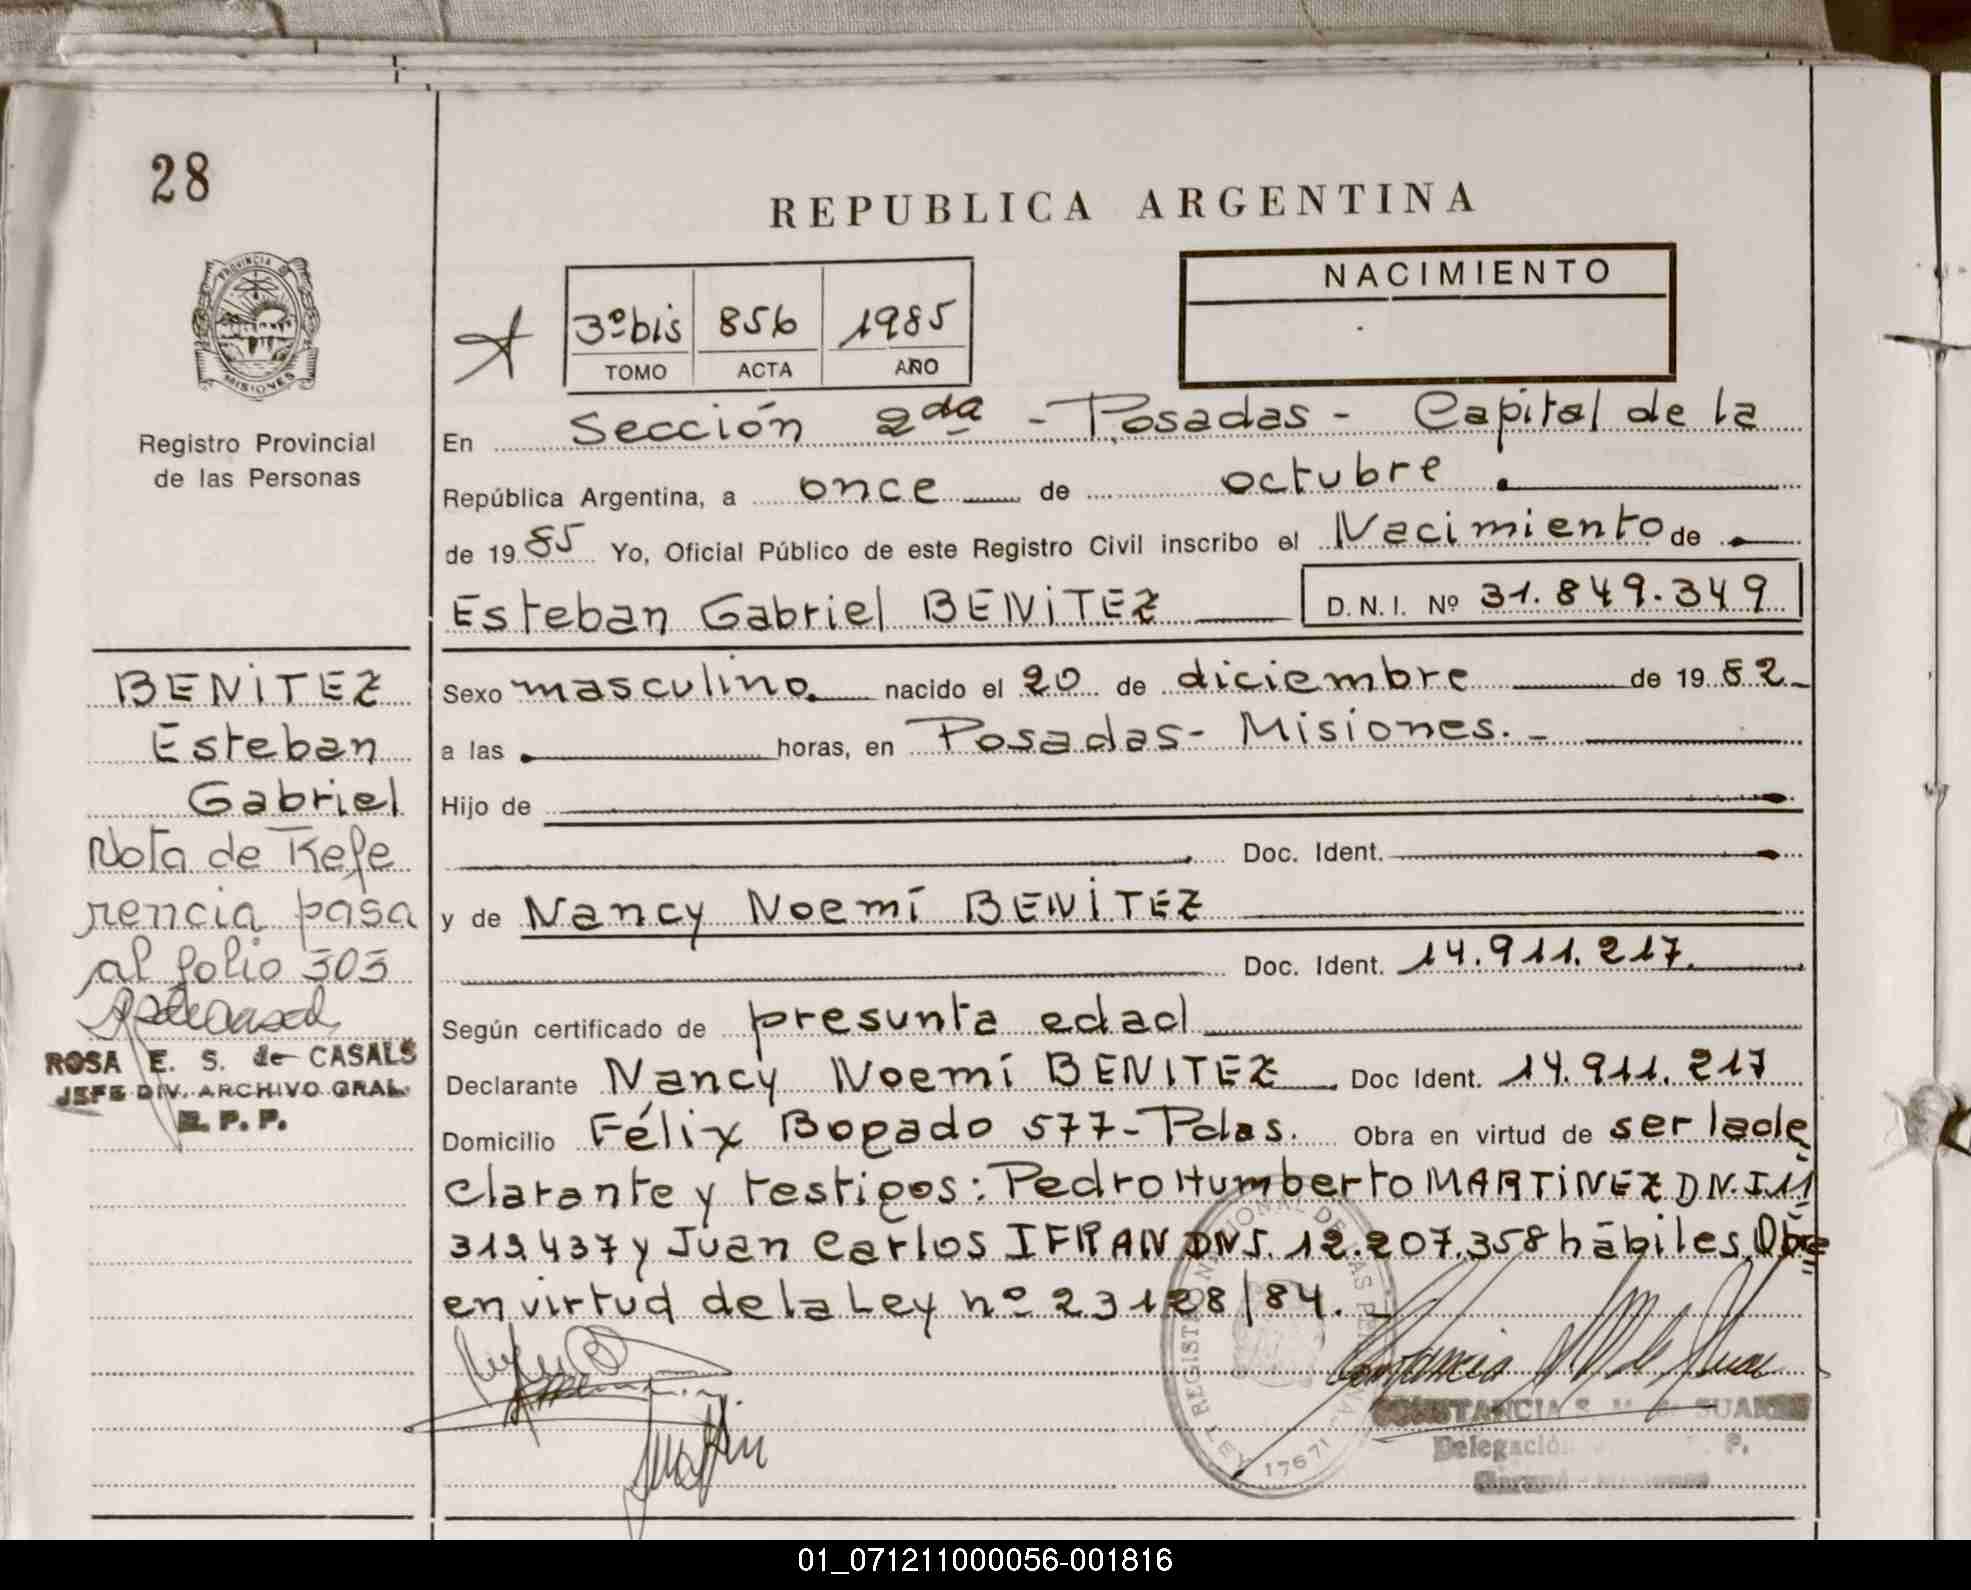 28
REPUBLICA ARGENTINA
PROVINCIA D
MISIONES
Registro Provincial
de las Personas
3º bis 856 1985
TOMO ACTA AÑO
NACIMIENTO
En Sección 2da - Posadas - Capital de la
República Argentina, a once de octubre
de 1985 Yo, Oficial Público de este Registro Civil inscribo el Nacimiento de
Esteban Gabriel BENITEZ D.N.I. Nº 31.849.349
Sexo masculino. nacido el 20 de diciembre de 1982
a las horas, en Posadas - Misiones. -
Hijo de
Doc. Ident.
y de Nancy Noemí BENITEZ
Doc. Ident. 14.911.217.
Según certificado de presunta edad
Declarante Nancy Noemí BENITEZ Doc Ident. 14.911.217
Domicilio Félix Bogado 577 - Pdas. Obra en virtud de ser la de
clarante y testigos: Pedro Humberto MARTINEZ D.N.I. 11
313.437 y Juan Carlos IFRAN DNI. 12.207.358 hábiles. Obra
en virtud de la Ley nº 23128/84. -
BENITEZ
Esteban
Gabriel
Nota de Refe
rencia pasa
al folio 303
ROSA E. S. de CASALS
JEFE DIV. ARCHIVO GRAL.
R. P. P.
REGISTRO NACIONAL DE LAS
LEY 17671
CONSTANCIA S. M. de SUAREZ
Delegación P.
01_071211000056-001816